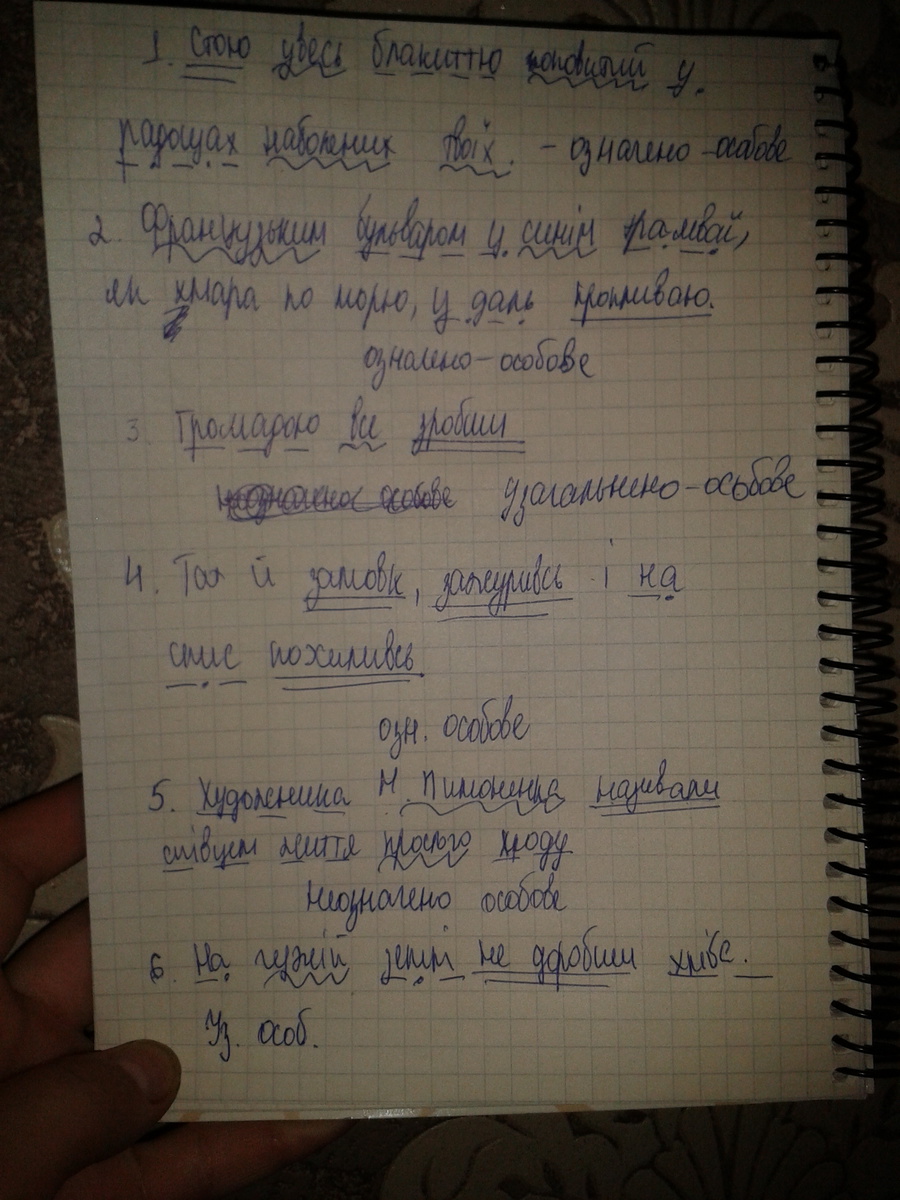 1. Стою увесь блакиттю повитий у
радощах набожних твоїх. - означено-особове
2. Французьким бульваром у синім трамваї,
як хмара по морю, у даль пропливаю.
означено-особове
3. Громадою все зробиш
неозначено особове узагальнено-особове
4. Так й замовк, зажуривсь і на
спис похиливсь.
озн. особове
5. Художника М. Пимоненка називали
співцем життя простого народу
Неозначено особове
6. На чужій землі не доробиш хліба.
Уз. особ.